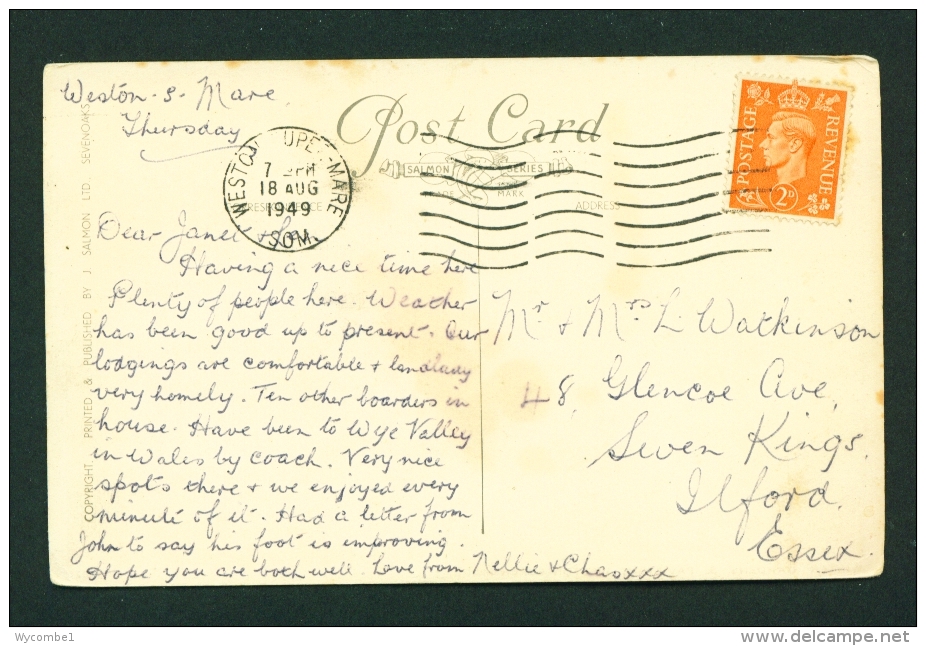 Weston-S-Mare,
Thursday
Post Card
SALMON SERIES
MARK
ADDRESS
WESTON SUPER-MARE
7 PM
18 AUG
1949
SOM.
POSTAGE REVENUE
2D
Dear Janet &
Having a nice time here
Plenty of people here. Weather
has been good up to present. Our
lodgings are comfortable & landlady
very homely. Ten other boarders in
house. Have been to Wye Valley
in Wales by coach. Very nice
spots there & we enjoyed every
minute of it. Had a letter from
John to say his foot is improving.
Hope you are both well. Love from Nellie & Chas xxx
Mr & Mrs L Watkinson
48, Glencoe Ave,
Seven Kings,
Ilford,
Essex.
COPYRIGHT. PRINTED & PUBLISHED BY J. SALMON LTD. SEVENOAKS
Wycombe1
www.delcampe.net